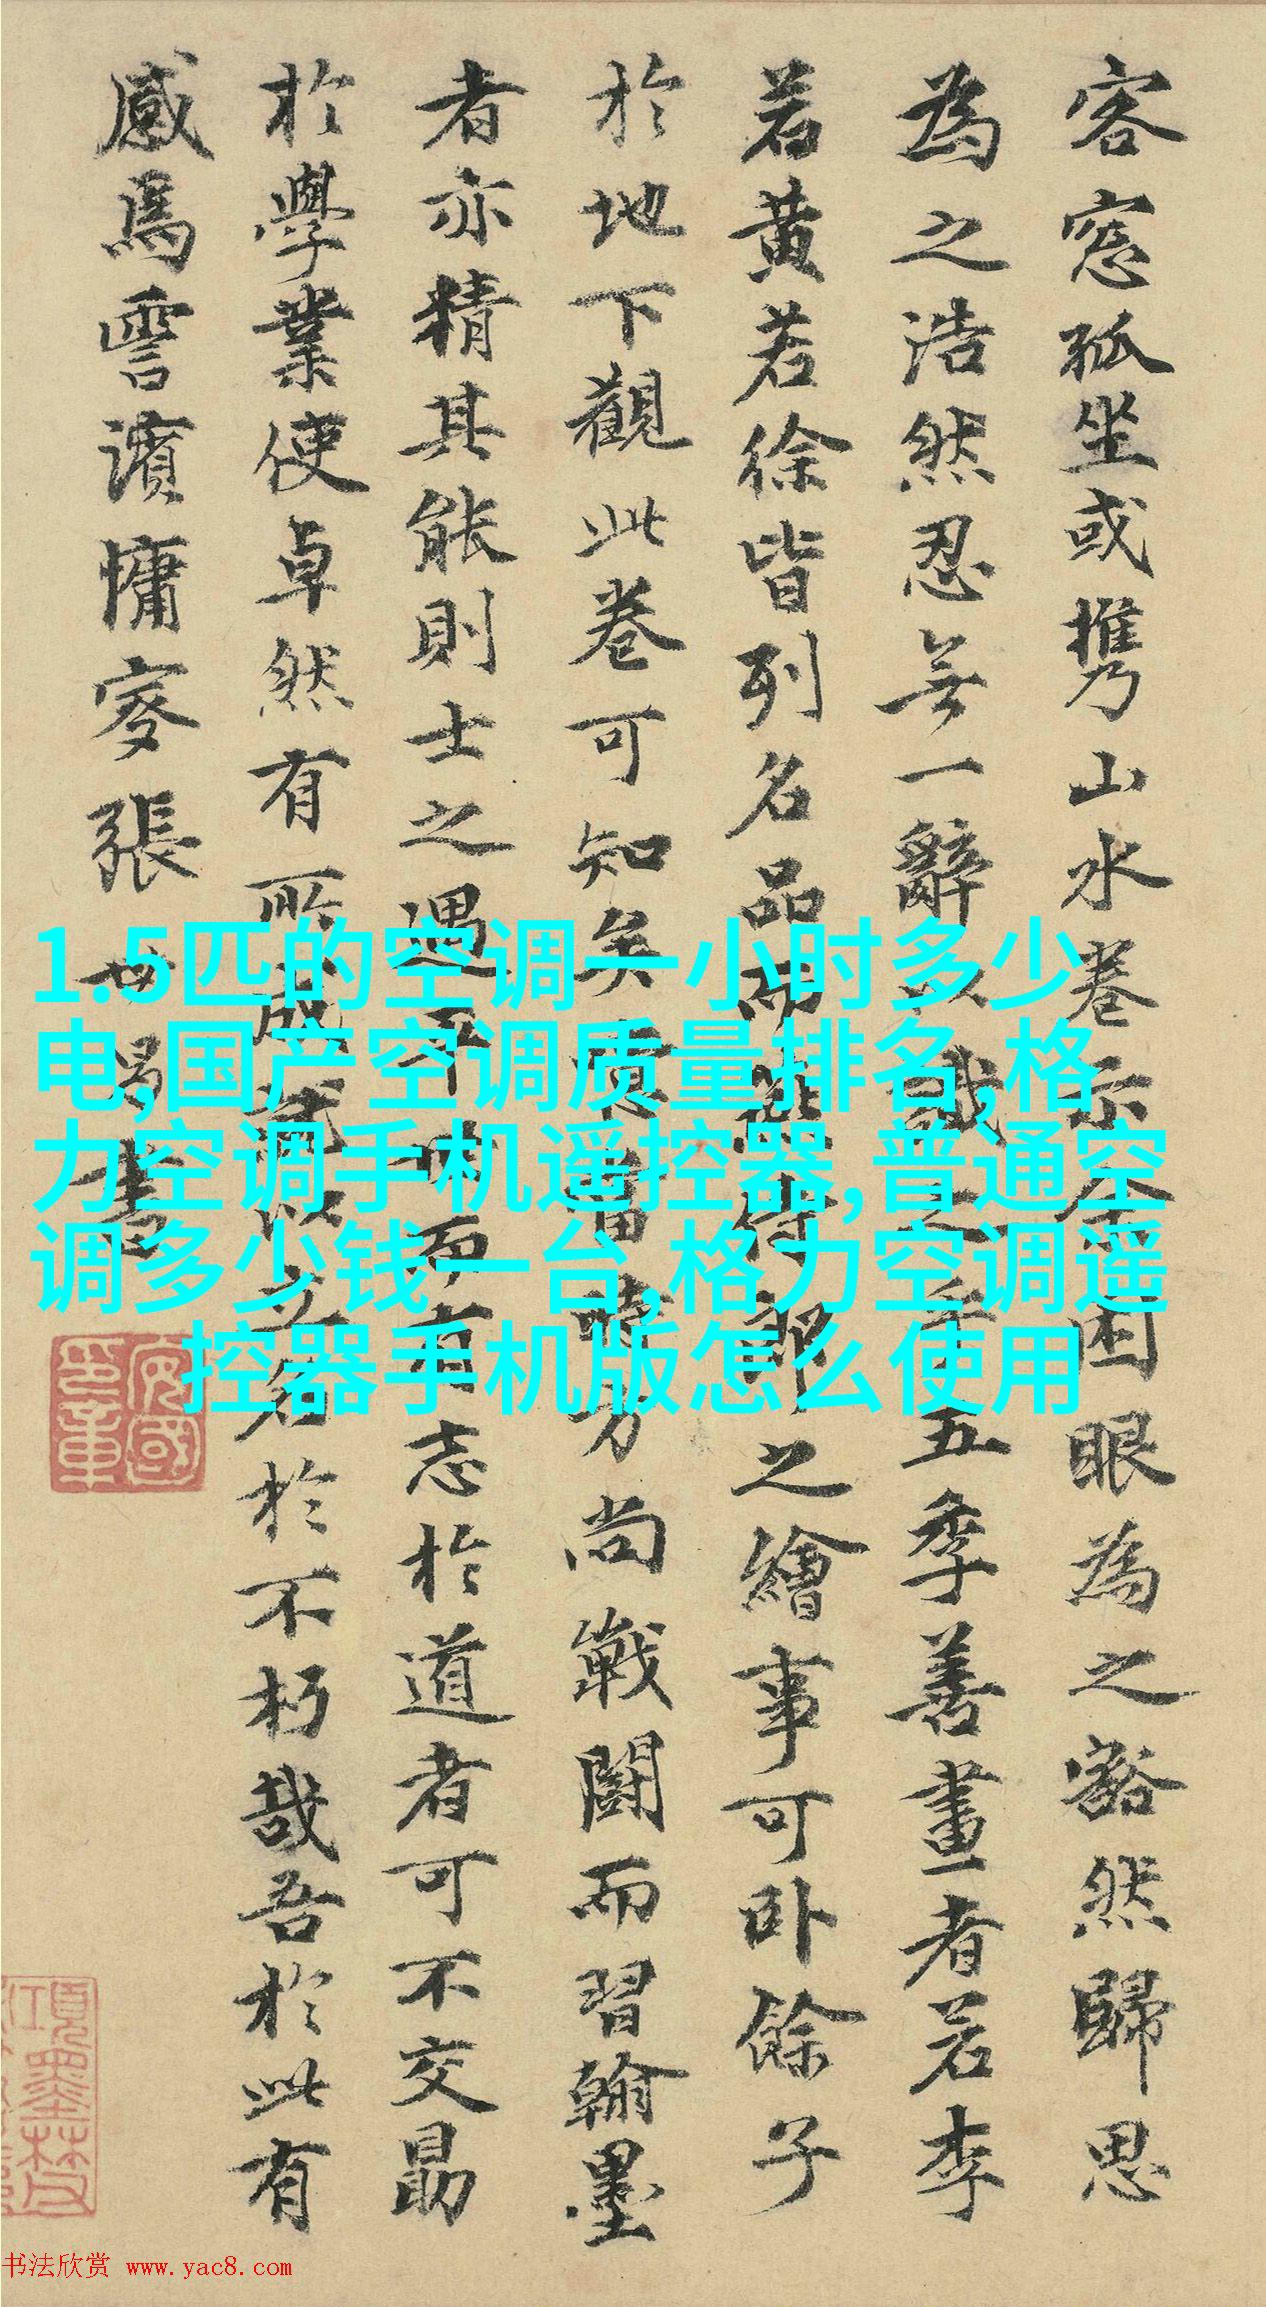 客窓孤坐或携山水卷示余困眼為之豁然歸思
為之浩然忍無一辭以識之乎五季善畫者若李
若黄若徐皆列名品而燕侍郎之繪事可卧餘子
於地下觀此卷可知矣嘗當時方尚戰鬪而習翰墨
者亦精其能則士之遇平時而有志於道者可不交勗
於學業使卓然有所成就以立名於不朽哉吾於此有
感焉霅濱慵叜張世昌書
1.5匹的空调一小时多少
电,国产空调质量排名,格
力空调手机遥控器,普通空
调多少钱一台,格力空调遥
控器手机版怎么使用
书法欣赏 www.yac8.com